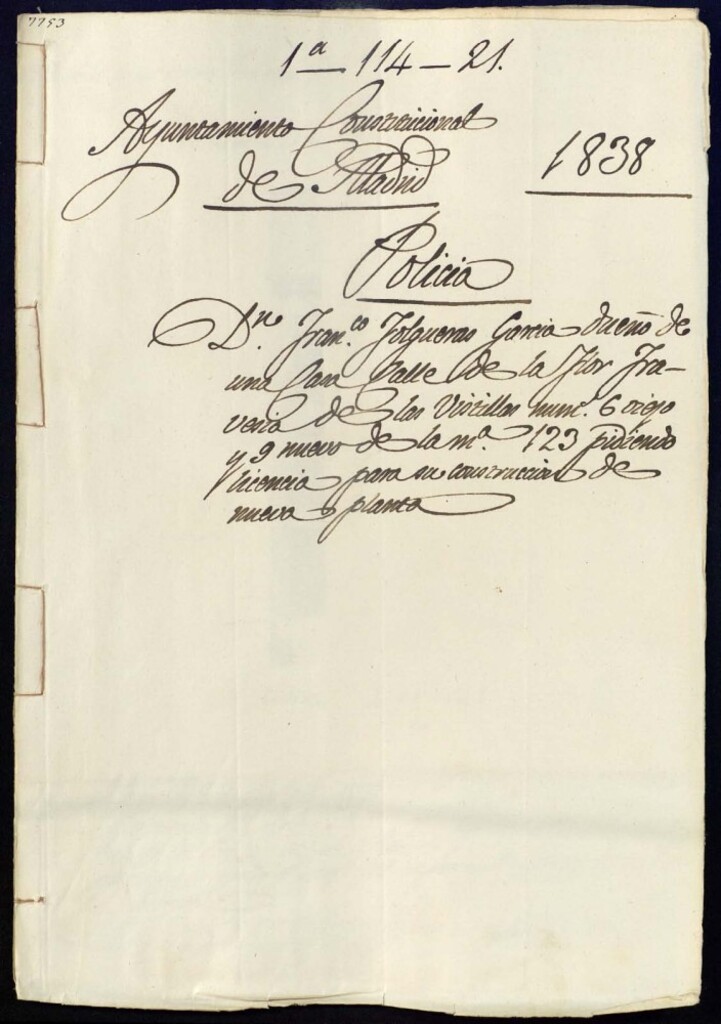 7753
1ª 114-21.
Ayuntamiento Constitucional
de Madrid
1838
Policia
Dn. Franco. Folgueras Garcia dueño de
una Casa Calle de la Flor Tra-
vesia de las Vistillas num. 6 viejo
y 9 nuevo de la ma. 123 pidiendo
licencia para su construccion de
nueva planta